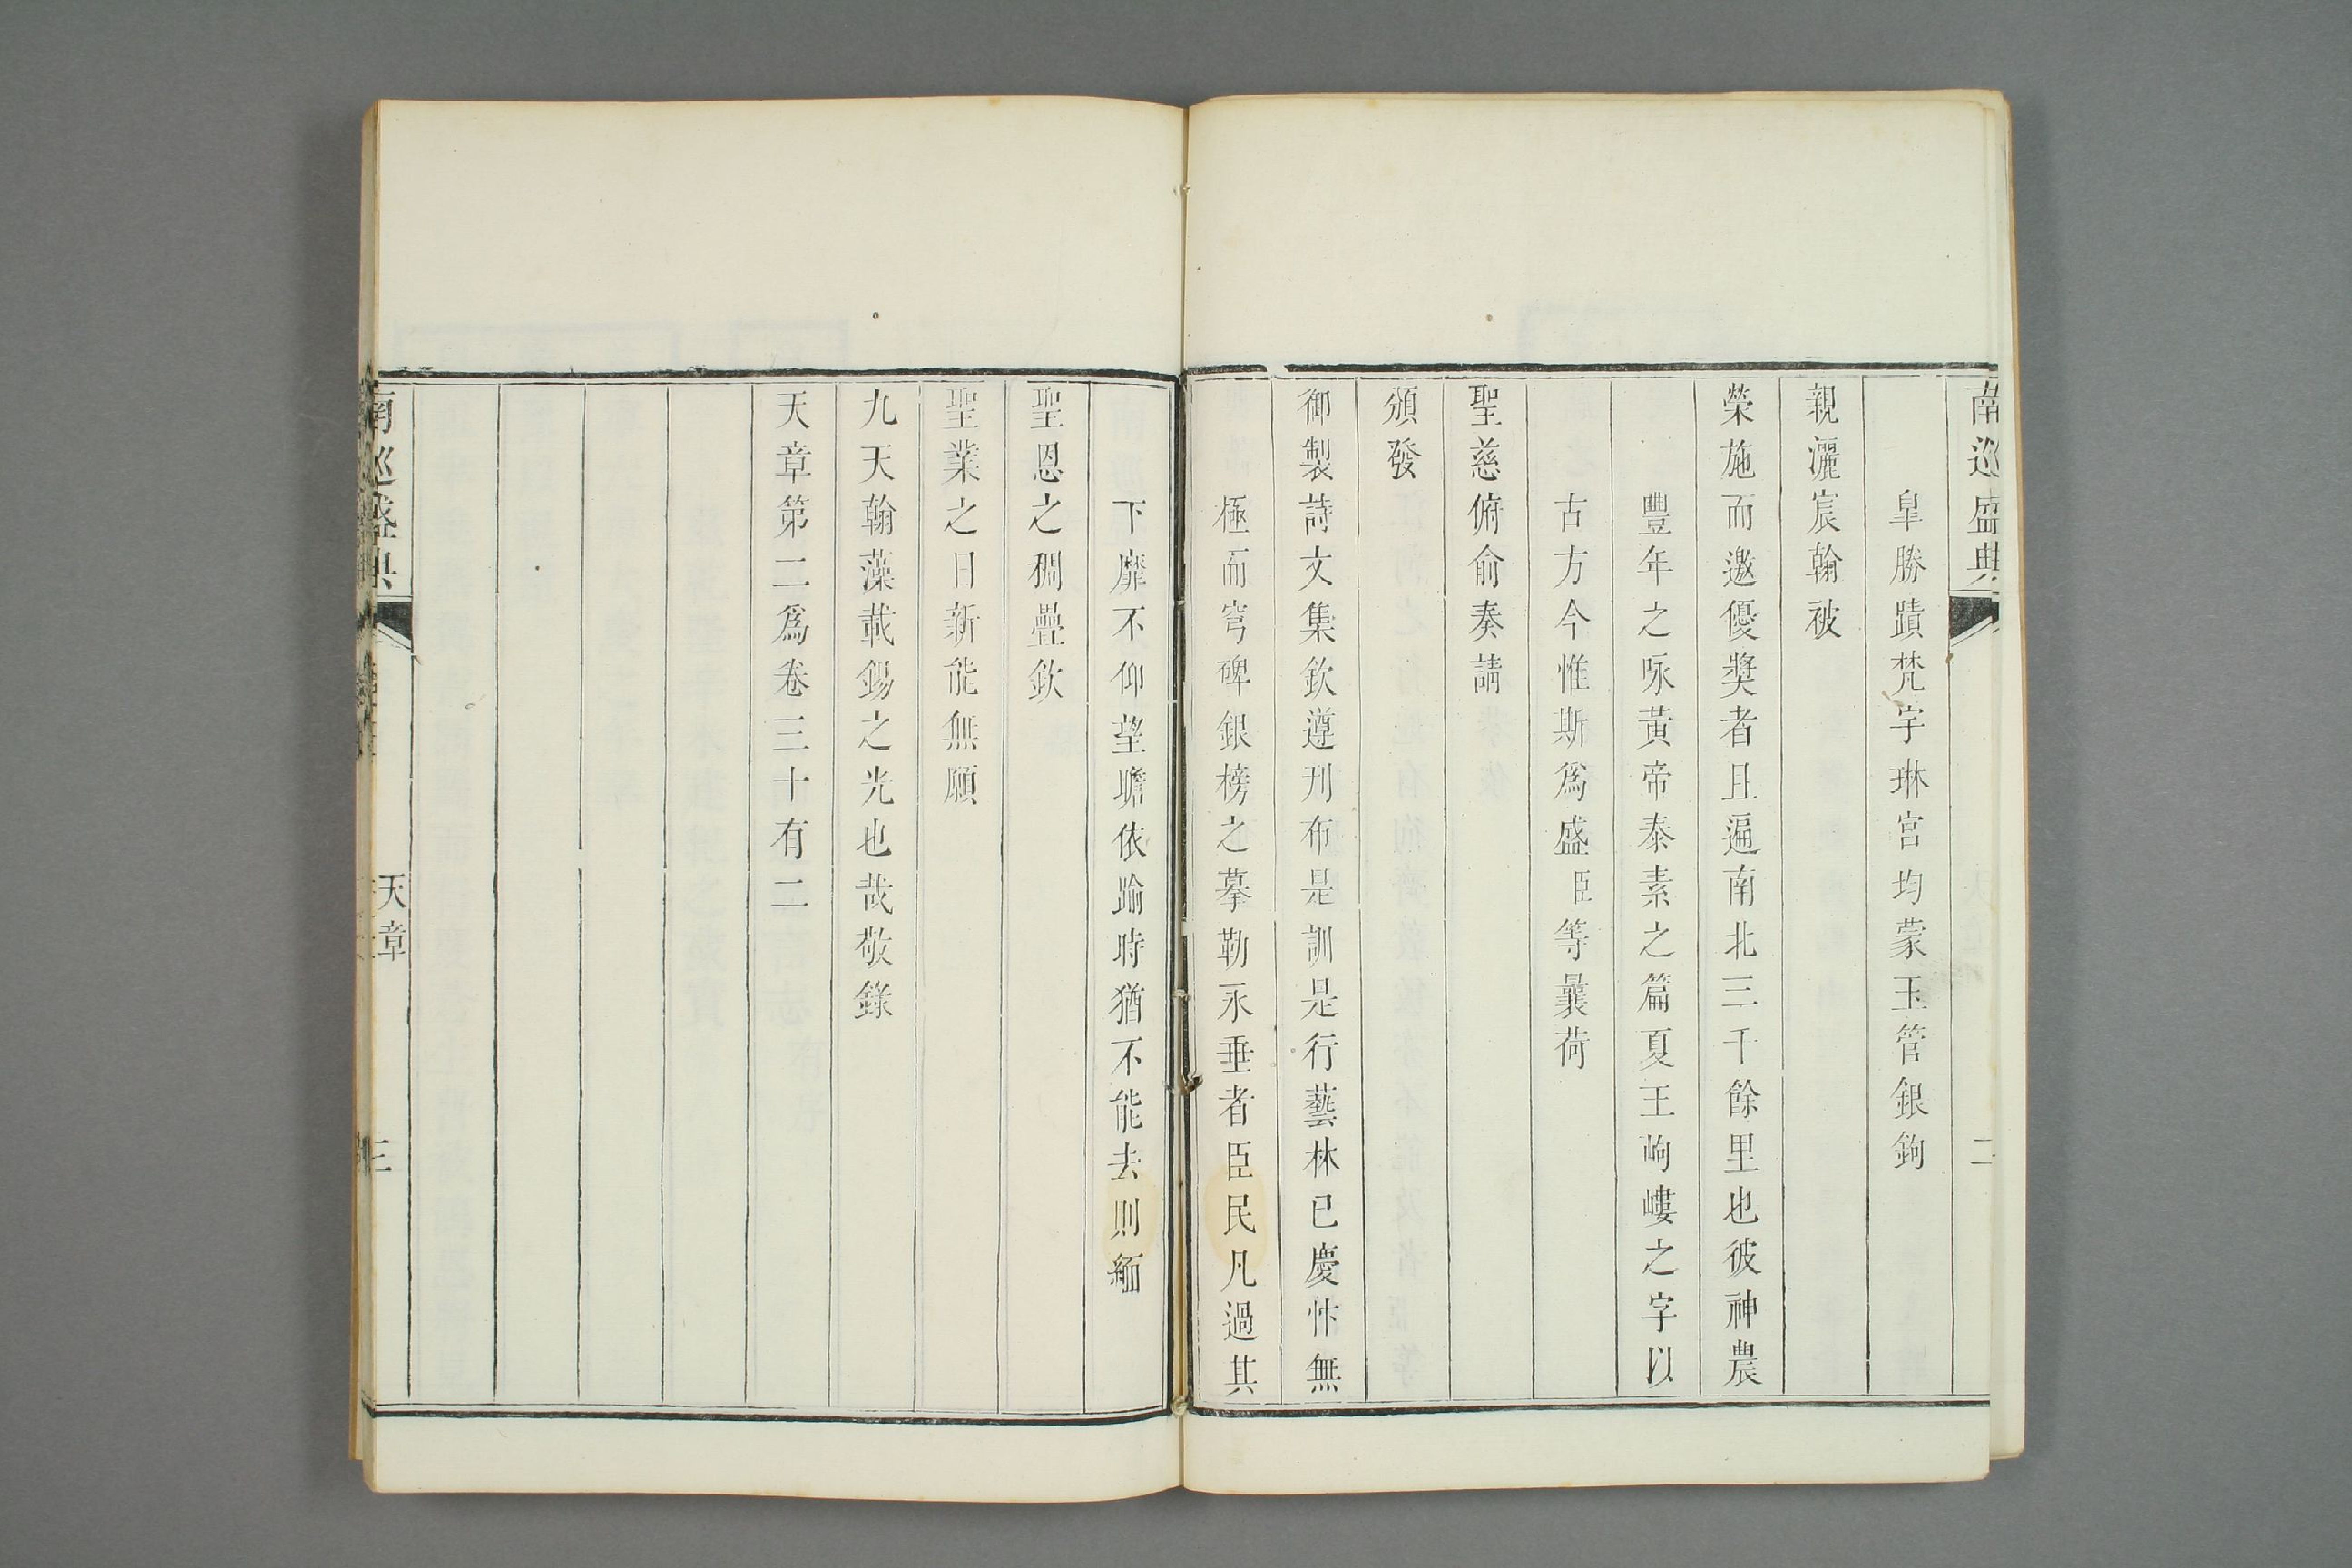 南巡盛典
二
皐勝蹟梵宇琳宮均蒙玉管銀鉤
親灑宸翰被
榮施而邀優獎者且遍南北三千餘里也彼神農
豐年之咏黃帝泰素之篇夏王岣嶁之字以
古方今惟斯爲盛臣等曩荷
聖慈俯俞奏請
頒發
御製詩文集欽遵刊布是訓是行藝林已慶忭無
極而穹碑銀榜之摹勒永垂者臣民凡過其
下靡不仰望瞻依踰時猶不能去則緬
聖恩之稠疊欽
聖業之日新能無願
九天翰藻載錫之光也哉敬錄
天章第二爲卷三十有二
南巡盛典
天章
三